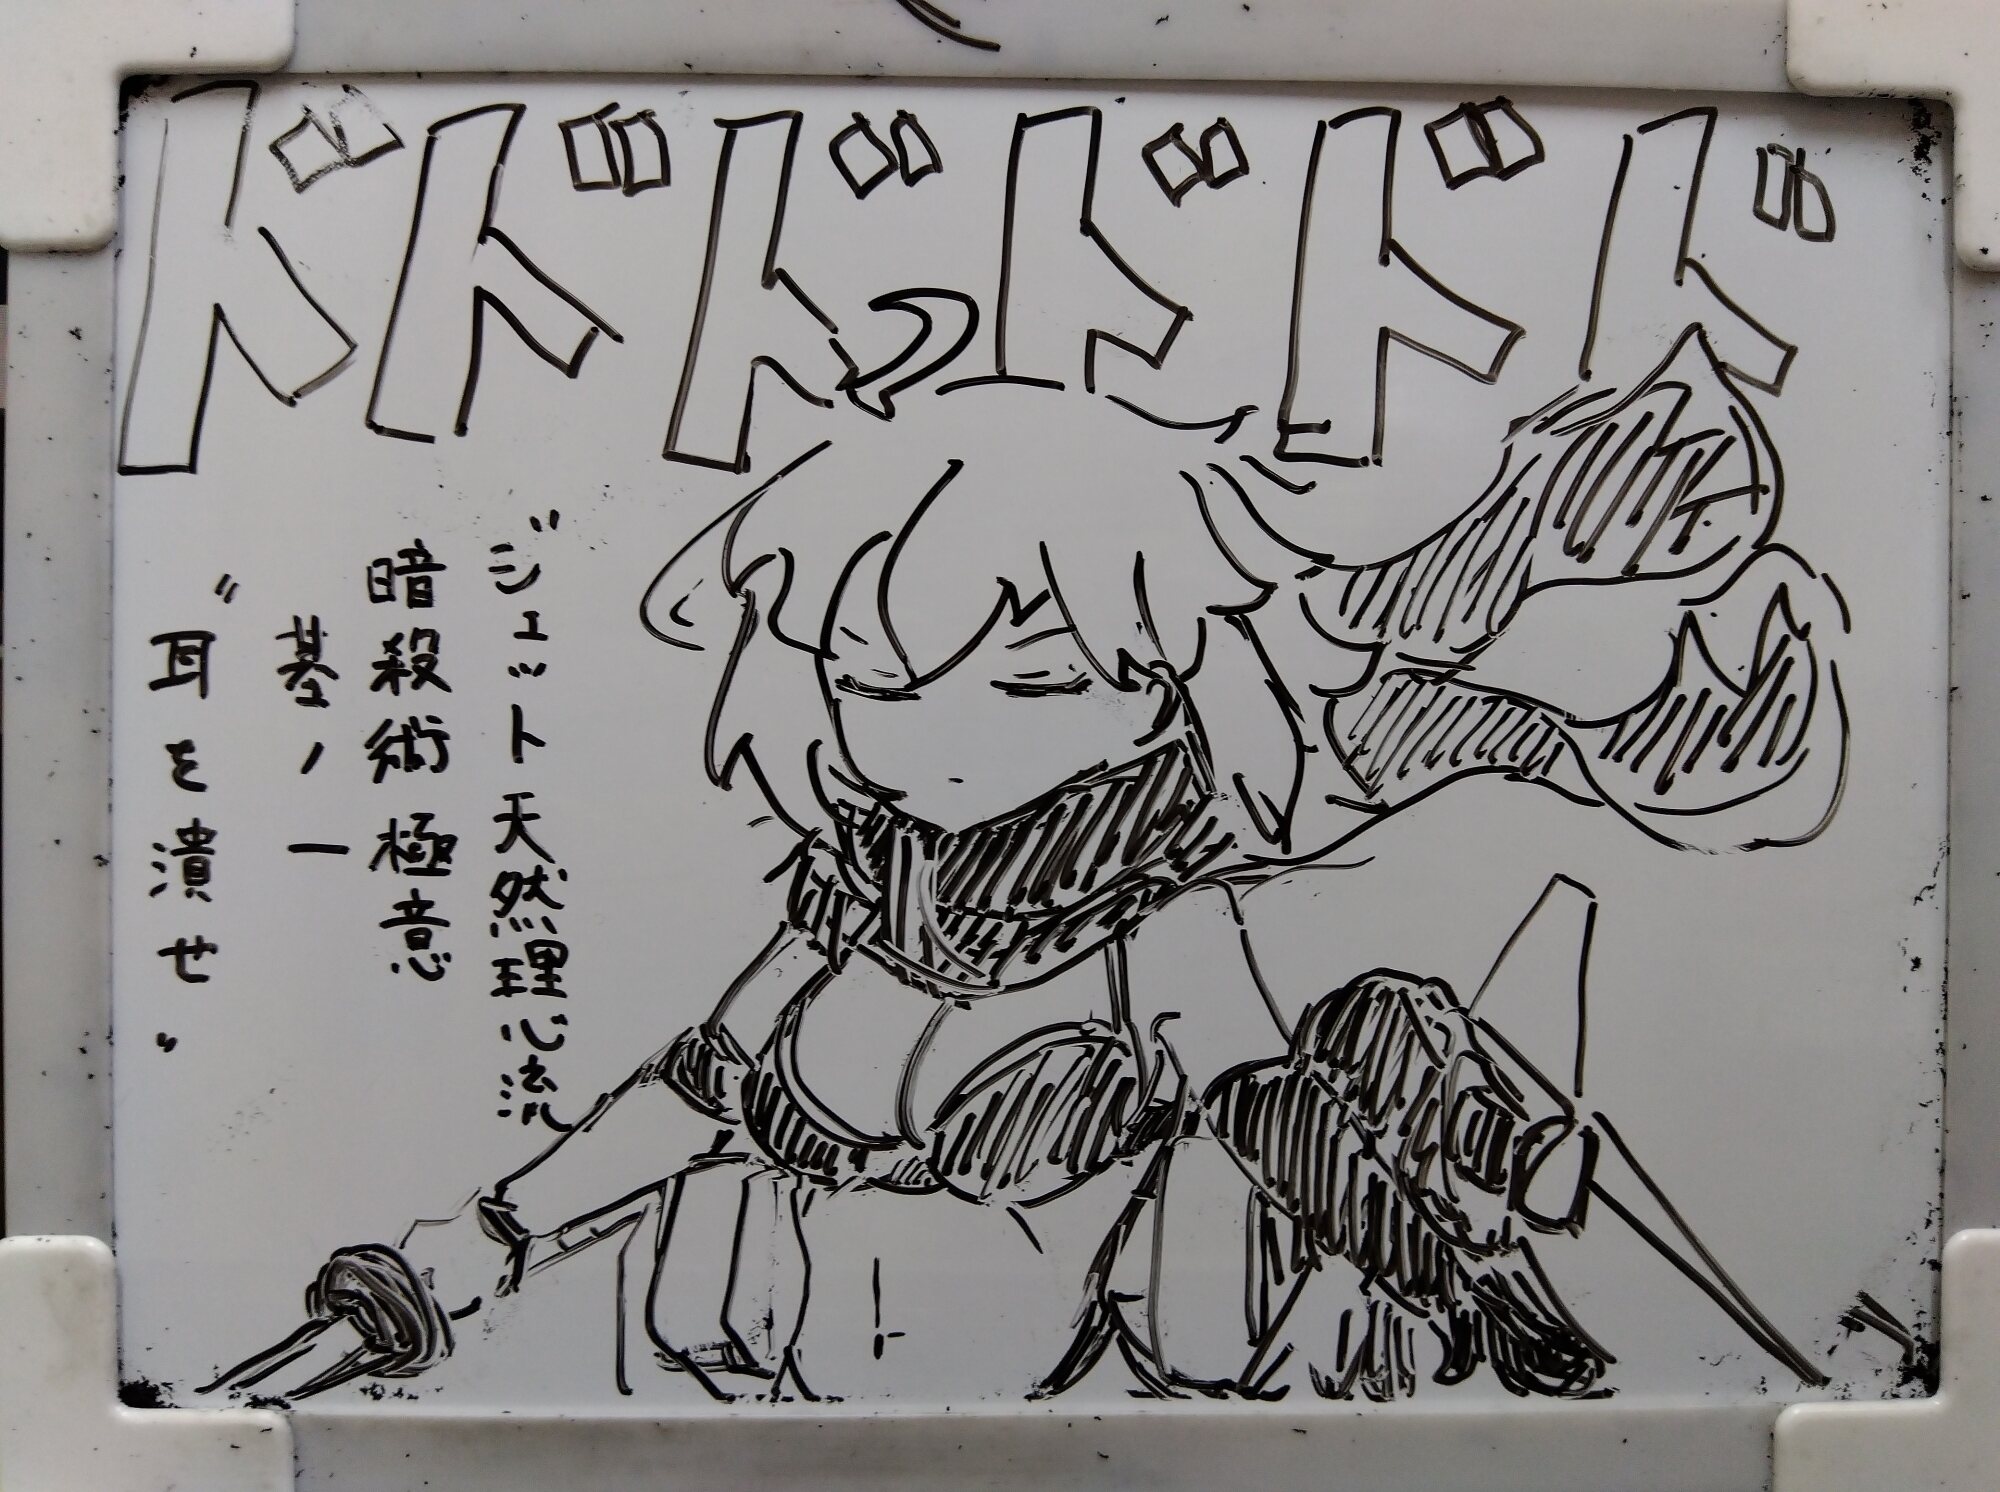 ドドドドドド
ジェット天然理心流
暗殺術極意
基ノ一
“耳を潰せ”